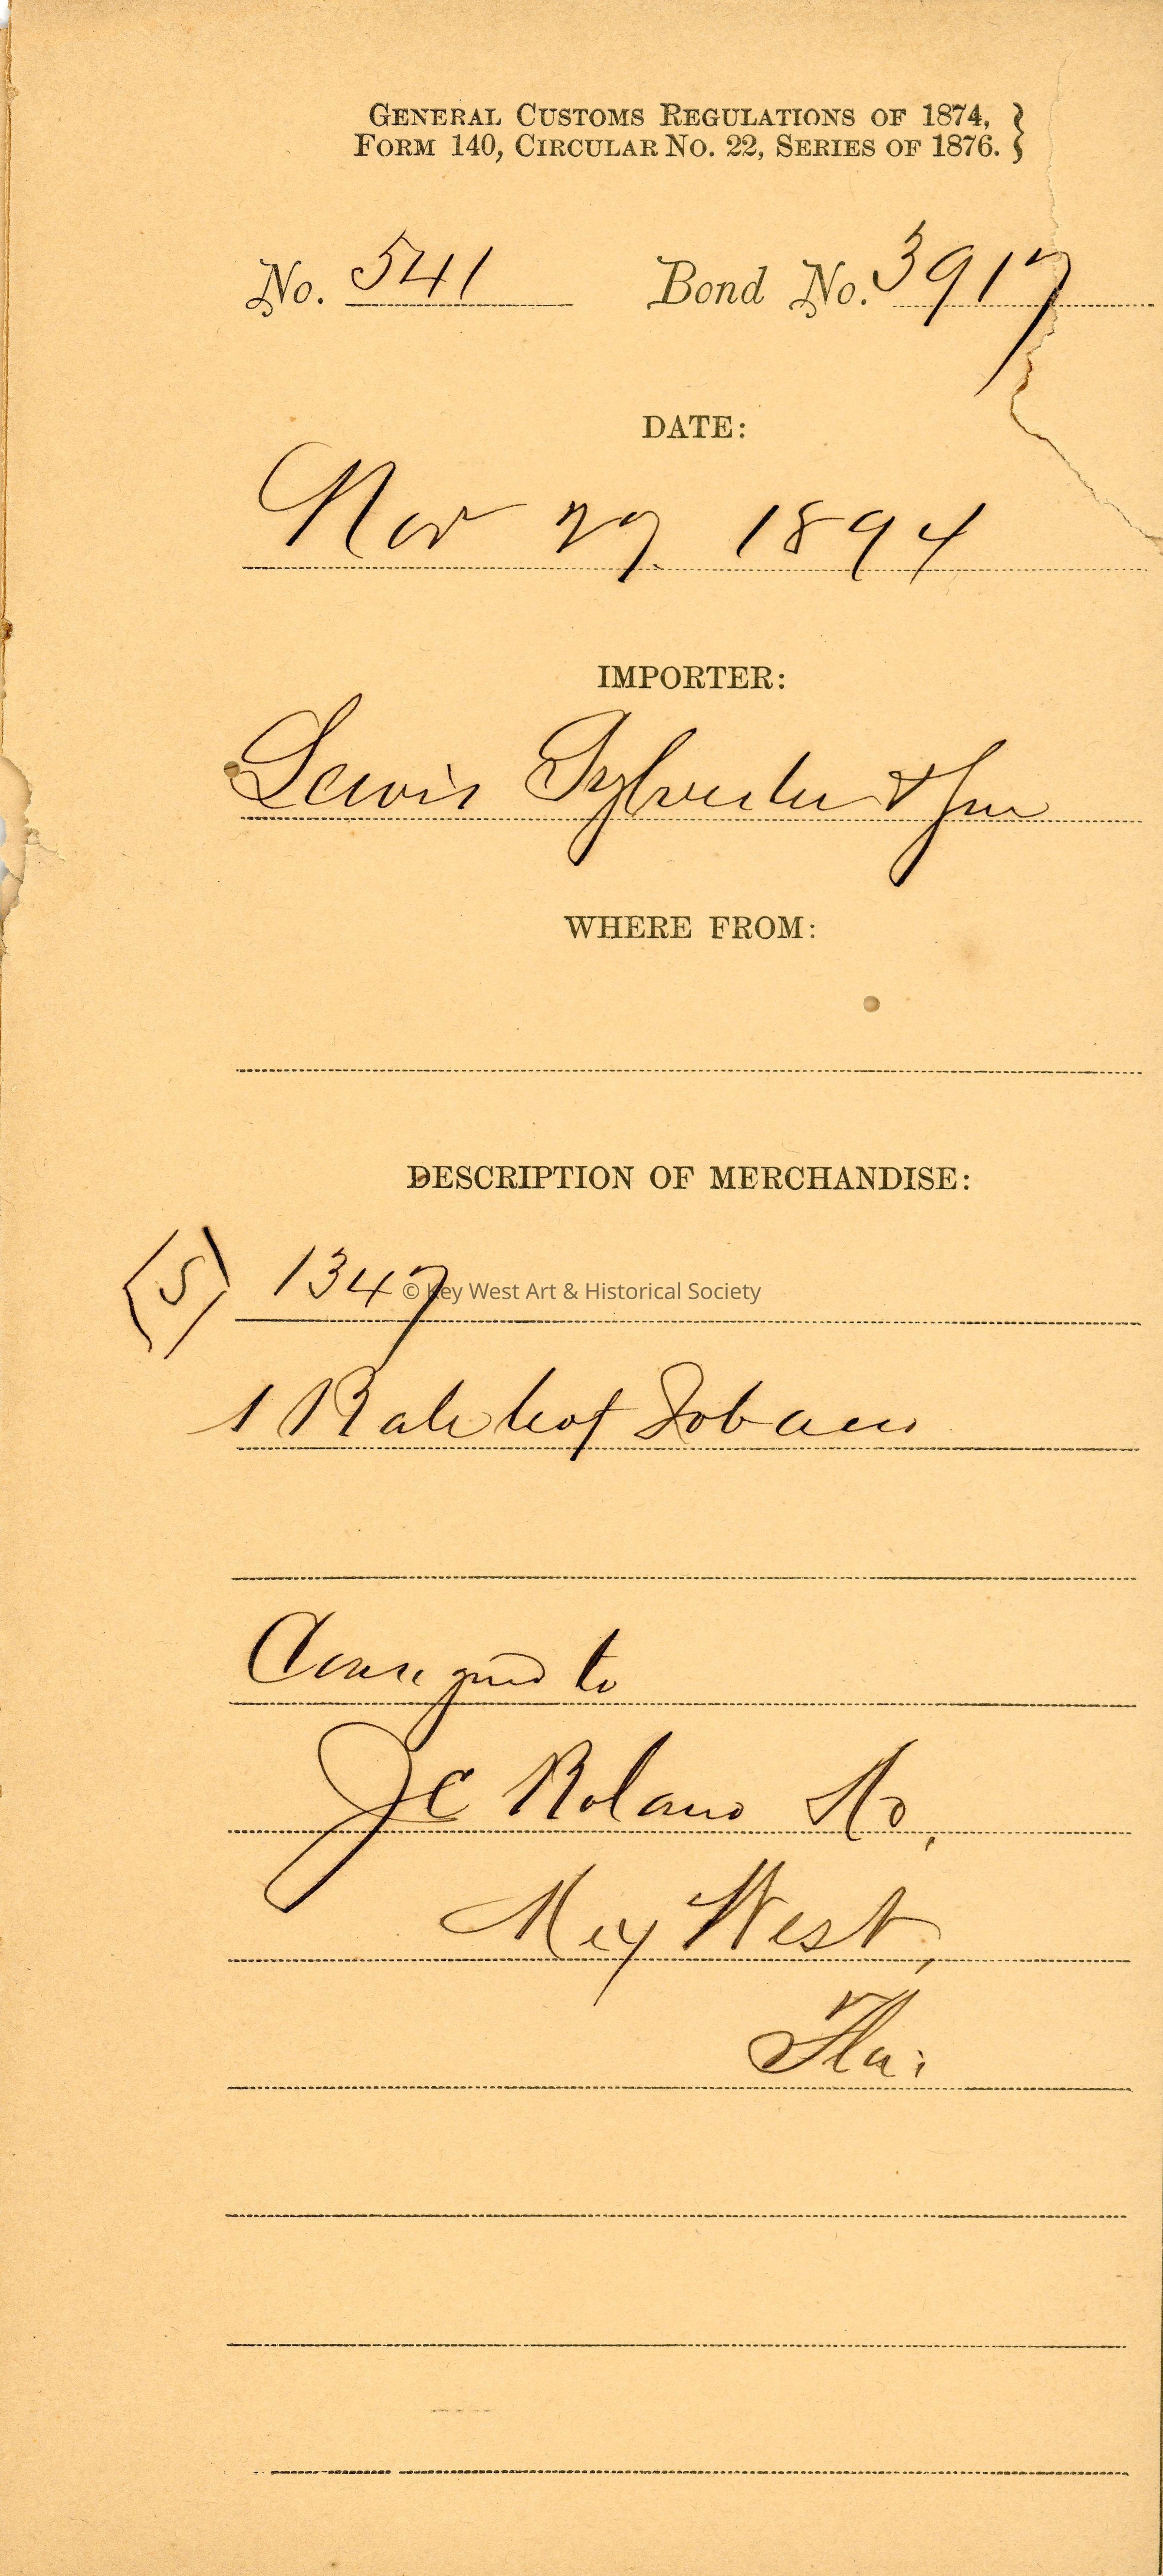 GENERAL CUSTOMS REGULATIONS OF 1874,
FORM 140, CIRCULAR NO. 22, SERIES OF 1876.
No. 541 Bond No. 3917
DATE:
Nov 27 1894
IMPORTER:
Lewis Sylvester & Son
WHERE FROM:
DESCRIPTION OF MERCHANDISE:
<S> 1347
© Key West Art & Historical Society
1 Bale leaf Tobacco
Consigned to
JC Roland
Key West,
Fla.